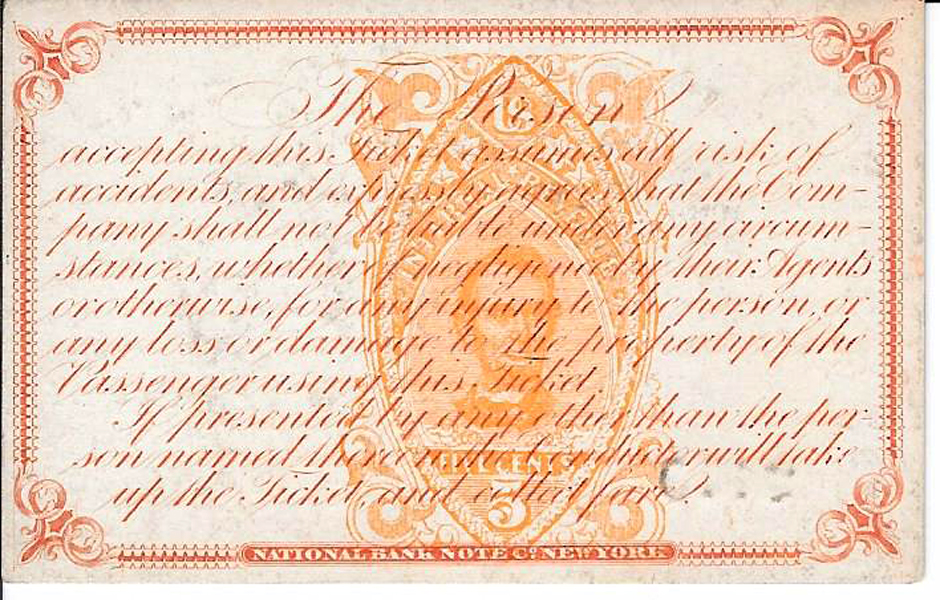 The Person
accepting this Ticket assumes all risk of
accidents, and expressly agrees that the Com-
pany shall not be liable under any circum-
stances, whether of negligence by their Agents
or otherwise, for any injury to the person, or
any loss or damage to the property of the
Passenger using this Ticket
If presented by any other than the per-
son named thereon the Conductor will take
up the Ticket, and collect fare.
U.S.
INTER. REVENUE
FIVE CENTS
5
NATIONAL BANK NOTE CO. NEW YORK